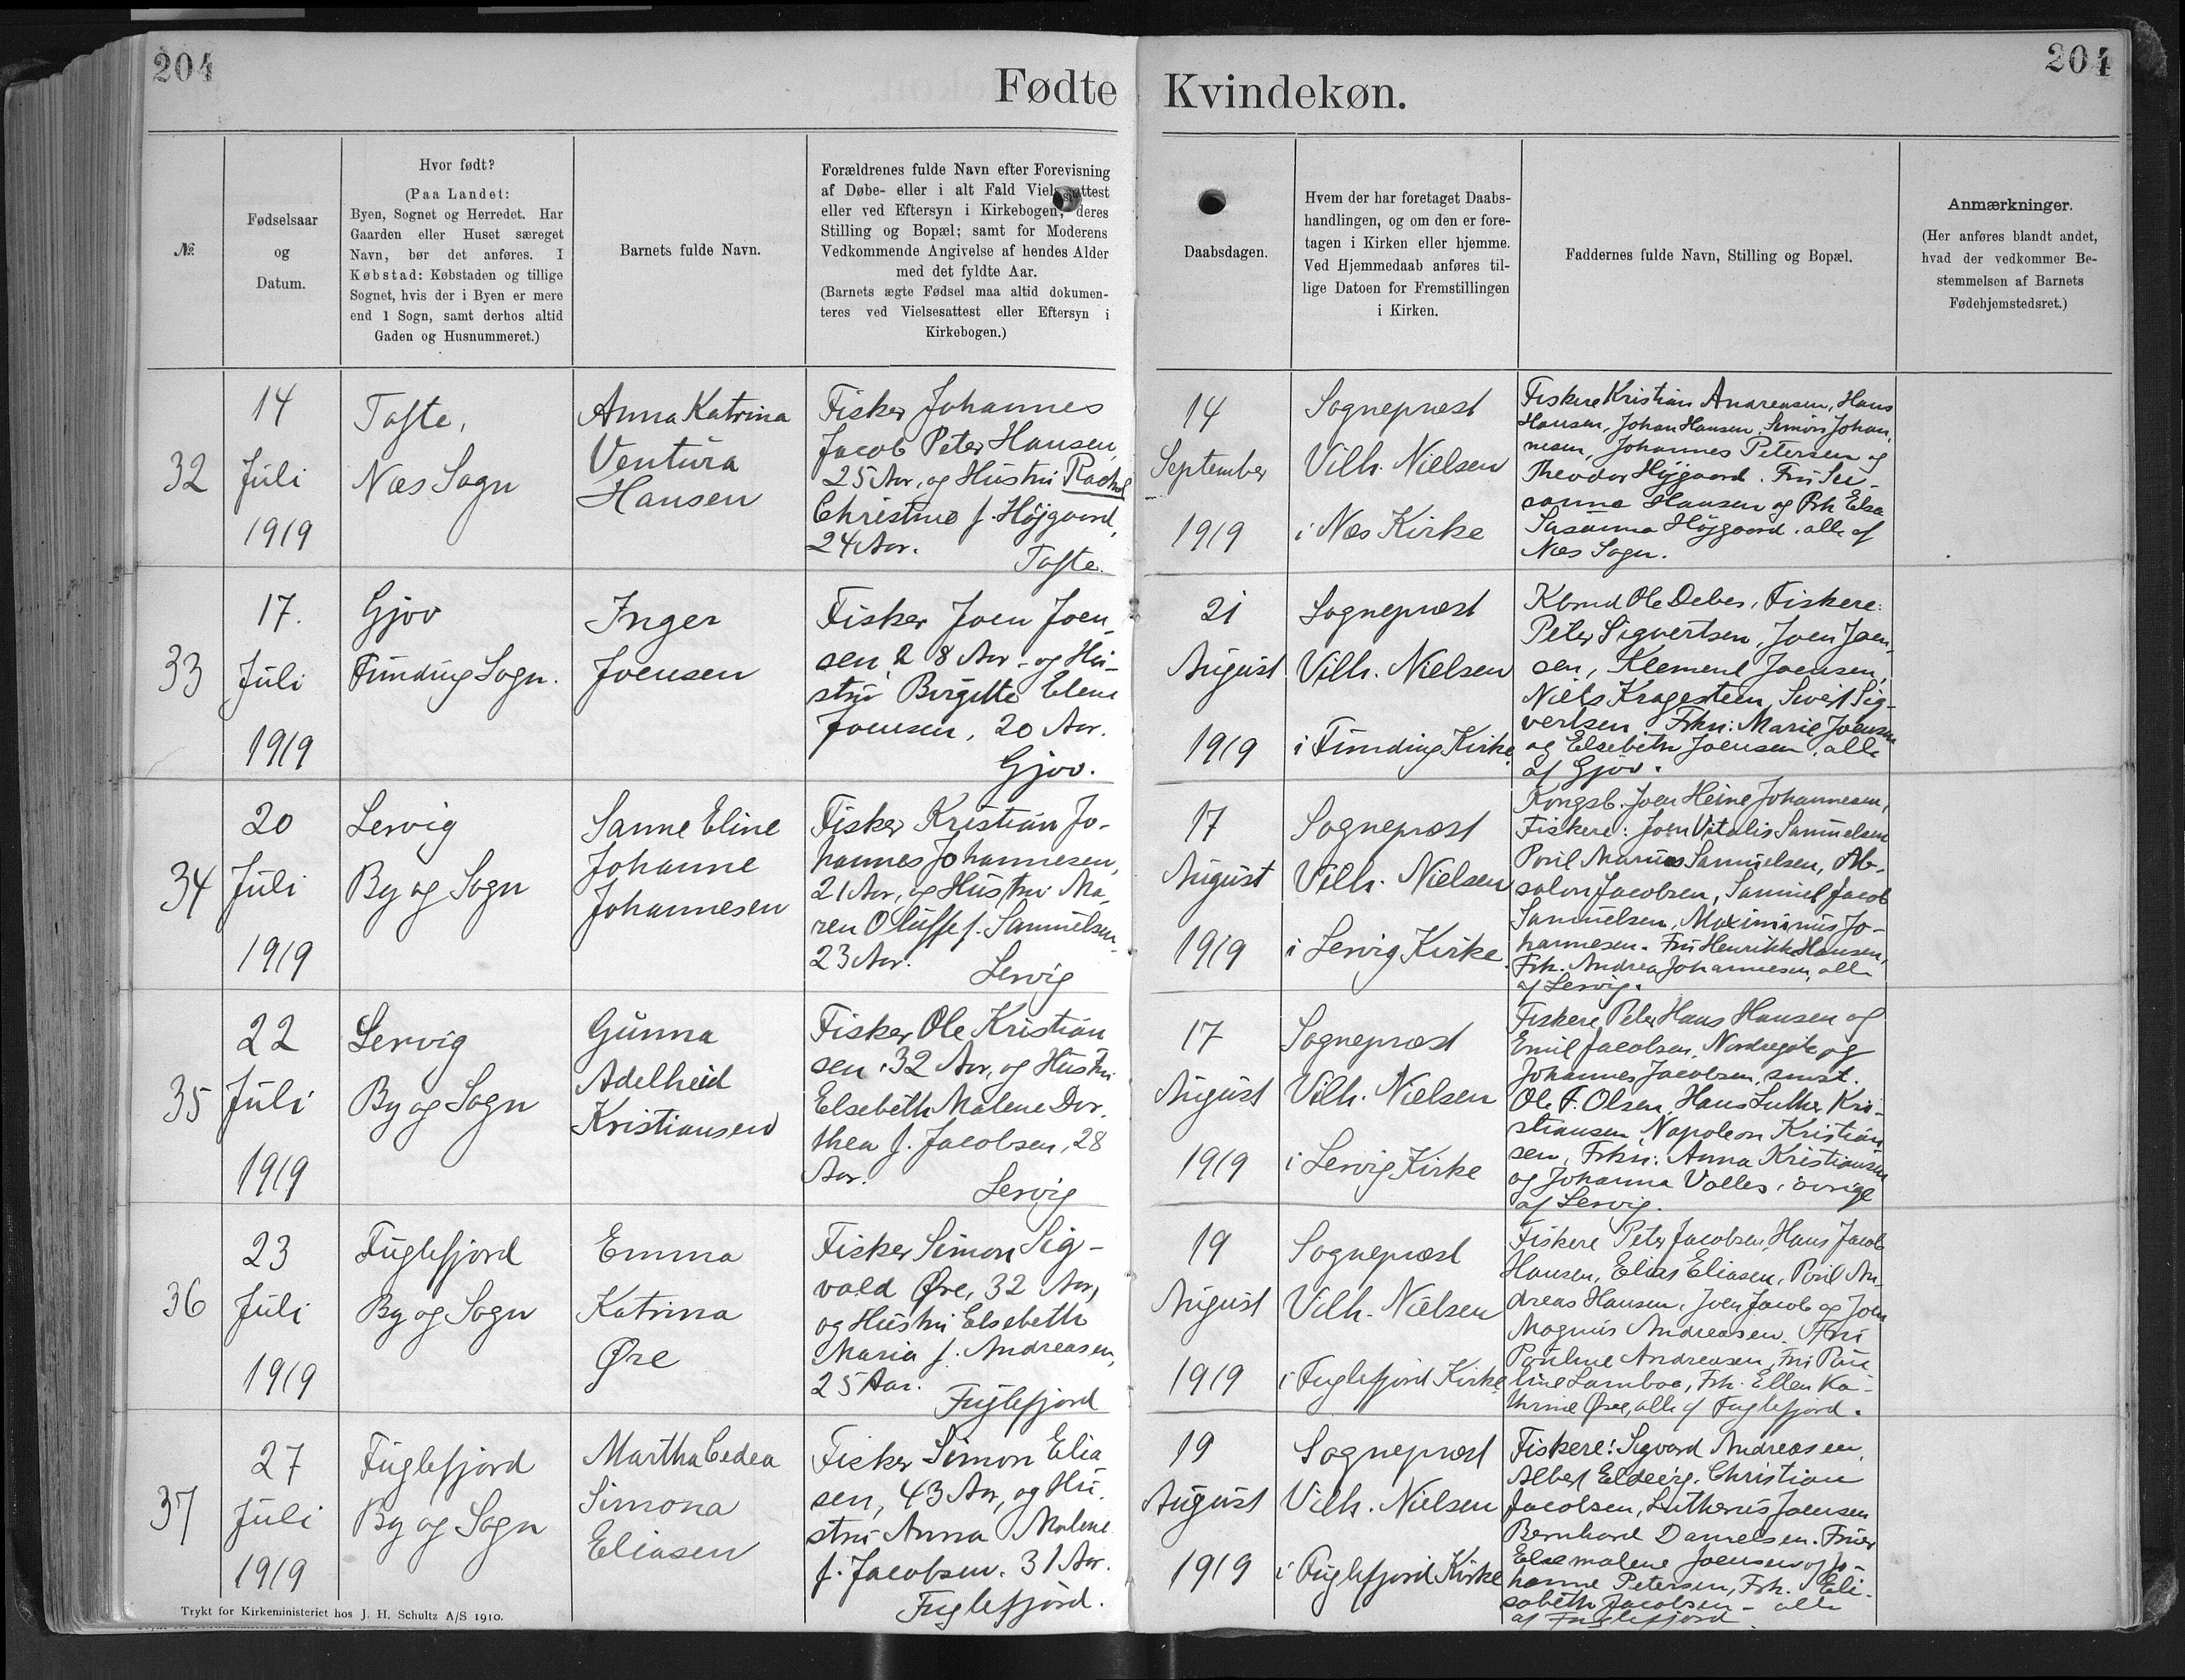 204
Fødte
№
Fødselsaar
og
Datum.
Hvor født?
(Paa Landet:
Byen, Sognet og Herredet. Har
Gaarden eller Huset særeget
Navn, bør det anføres. I
Købstad: Købstaden og tillige
Sognet, hvis der i Byen er mere
end 1 Sogn, samt derhos altid
Gaden og Husnummeret.)
Barnets fulde Navn.
Forældrenes fulde Navn efter Forevisning
af Døbe- eller i alt Fald Vielsesattest
eller ved Eftersyn i Kirkebogen, deres
Stilling og Bopæl; samt for Moderens
Vedkommende Angivelse af hendes Alder
med det fyldte Aar.
(Barnets ægte Fødsel maa altid dokumen-
teres ved Vielsesattest eller Eftersyn i
Kirkebogen.)
204
Kvindekøn.
Daabsdagen.
Hvem der har foretaget Daabs-
handlingen, og om den er fore-
tagen i Kirken eller hjemme.
Ved Hjemmedaab anføres til-
lige Datoen for Fremstillingen
i Kirken.
Faddernes fulde Navn, Stilling og Bopæl.
Anmærkninger.
(Her anføres blandt andet,
hvad der vedkommer Be-
stemmelsen af Barnets
Fødehjemstedsret.)
32
14
Juli
1919
Tofte,
Næs Sogn
Anna Katrina
Ventura
Hansen
Fisker Johannes
Jacob Peter Hansen,
25 Aar, og Hustru Rachel
Christine f. Højgaard,
24 Aar.
Tofte.
14
September
1919
Sognepræst
Vilh. Nielsen
i Næs Kirke
Fiskere Kristian Andreasen, Hans
Hansen, Johan Hansen, Simon Johan
nesen, Johannes Petersen og
Theodor Højgaard. Fru Su-
sanna Hansen og Frk Elsa
Susanna Højgaard. alle af
Næs Sogn.
33
17.
Juli
1919
Gjov
Funding Sogn.
Inger
Joensen
Fisker Joen Joen-
sen 28 Aar - og Hu-
stru Birgitte Elene
Joensen, 20 Aar.
Gjov.
21
August
1919
Sognepræst
Vilh. Nielsen
i Funding Kirke
Kbmd Ole Debes, Fiskere:
Peter Sigvertsen, Joen Joen
sen, Klement Joensen,
Niels Kragesteen, Sivert Sig-
vertsen Frkn: Marie Joensen
og Elsebeth Joensen, alle
af Gjov.
34
20
Juli
1919
Lervig
By og Sogn
Sanne Eline
Johanne
Johannesen
Fisker Kristian Jo-
hannes Johannesen,
21 Aar, og Hustru Ma-
ren Oluffe f. Samuelsen
23 Aar.
Lervig
17
August
1919
Sognepræst
Vilh. Nielsen
i Lervig Kirke.
Kongsb. Joen Heine Johannesen,
Fiskere: Joen Vitalis Samuelsen
Poul Marius Samuelsen, Ab-
salon Jacobsen, Samuel Jacob
Samuelsen, Maximinus Jo-
hannesen. Fru Henrikke Hansen,
Frk. Andrea Johannesen, alle
af Lervig.
35
22
Juli
1919
Lervig
By og Sogn
Gunna
Adelheid
Kristiansen
Fisker Ole Kristian
sen, 32 Aar, og Hustru
Elsebeth Malene Dor.
thea f. Jacobsen, 28
Aar.
Lervig
17
August
1919
Sognepræst
Vilh. Nielsen
i Lervig Kirke
Fiskere Peter Hans Hansen og
Emil Jacobsen, Nordregøte og
Johannes Jacobsen, smst.
Ole F. Olsen, Hans Luther Kri-
stiansen, Napoleon Kristian
sen, Frkn: Anna Kristiansen
og Johanna Valles, øvrige
af Lervig.
36
23
Juli
1919
Fuglefjord
By og Sogn
Emma
Katrina
Øre
Fisker Simon Sig-
vald Øre, 32 Aar,
og Hustru Elsebeth
Maria f. Andreasen,
25 Aar.
Fuglefjord
19
August
1919
Sognepræst
Vilh. Nielsen
i Fuglefjord Kirke
Fiskere Peter Jacobsen, Hans Jacob
Hansen, Elias Eliasen, Poul An
dreas Hansen, Joen Jacob og Joen
Magnus Andreasen. Fru
Pouline Andreasen, Fru Pou
line Lamboa, Frk. Ellen Ka-
thrine Øre, alle af Fuglefjord.
37
27
Juli
1919
Fuglefjord
By og Sogn
Martha Cedea
Simona
Eliasen
Fisker Simon Elia
sen, 43 Aar, og Hu.
stru Anna Malene
f. Jacobsen. 31 Aar.
Fuglefjord.
19
August
1919
Sognepræst
Vilh. Nielsen
i Fuglefjord Kirke
Fiskere: Sigvard Andreasen,
Albert Eldevig, Christian
Jacobsen, Lutherus Joensen
Bernhard Danielsen. Fruer
Elsemalene Joensen og Jo-
hanne Petersen, Frk. Eli-
sabeth Jacobsen - alle
af Fuglefjord.
Trykt for Kirkeministeriet hos J. H. Schultz A/S 1910.